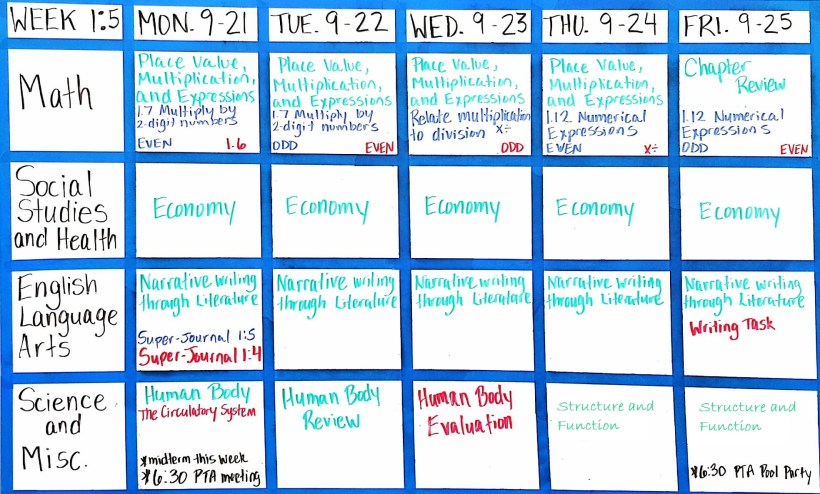 WEEK 1:5
MON. 9-21
TUE. 9-22
WED. 9-23
THU. 9-24
FRI. 9-25
Math
Place Value,
Multiplication,
and Expressions
1.7 Multiply by
2-digit numbers
EVEN 1.6
Place Value,
Multiplication,
and Expressions
1.7 Multiply by
2-digit numbers
ODD EVEN
Place Value,
Multiplication,
and Expressions
Relate multiplication
to division x÷
ODD
Place Value,
Multiplication,
and Expressions
1.12 Numerical
Expressions
EVEN x÷
Chapter
Review
1.12 Numerical
Expressions
ODD EVEN
Social
Studies
and Health
Economy
Economy
Economy
Economy
Economy
English
Language
Arts
Narrative writing
through Literature
Super-Journal 1:5
Super-Journal 1:4
Narrative writing
through Literature
Narrative writing
through Literature
Narrative writing
through Literature
Narrative writing
through Literature
Writing Task
Science
and
Misc.
Human Body
The Circulatory System
*midterm this week
*6:30 PTA meeting
Human Body
Review
Human Body
Evaluation
Structure and
Function
Structure and
Function
*6:30 PTA Pool Party